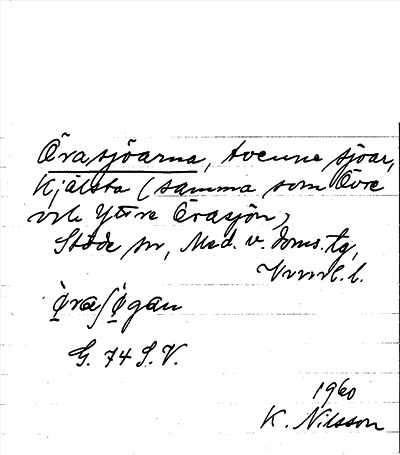 Örasjöarna, tvenne sjöar,
Kjälsta (samma som Övre
och Yttre Örasjön)
Stöde sn, Med. v. doms. tg,
G. 74 S.V.
1960
K. Nilsson